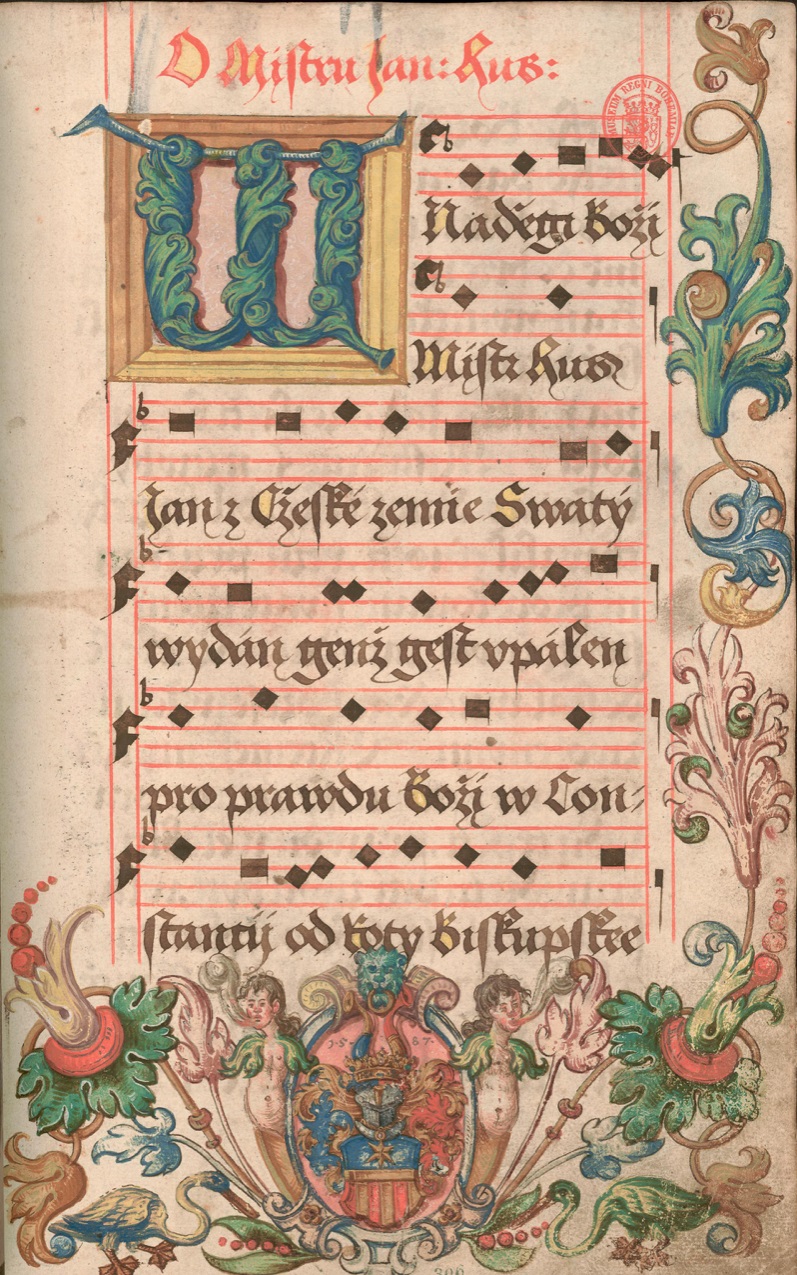 O Mistru Jan: Hus:
MUSEUM REGNI BOHEMIAE
W
Naděgi Boži
Mistr Hus
Jan z Cžeské zemie Swatý
wydán genž gest vpálen
pro prawdu Boži w Con-
stantij od Roty Biskupskee
15 87